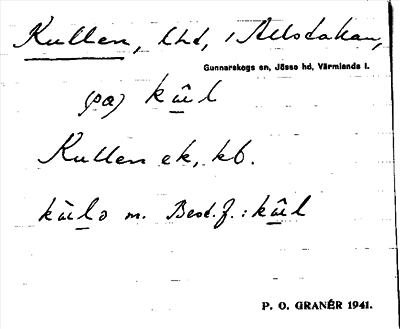 Kullen, lhd, i Allstakan,
Gunnarskogs sn, Jösse hd, Värmlands l.
(pa) kûl
Kullen ek, kb.
m. Best. f.: kûl
P. O. GRANÉR 1941.